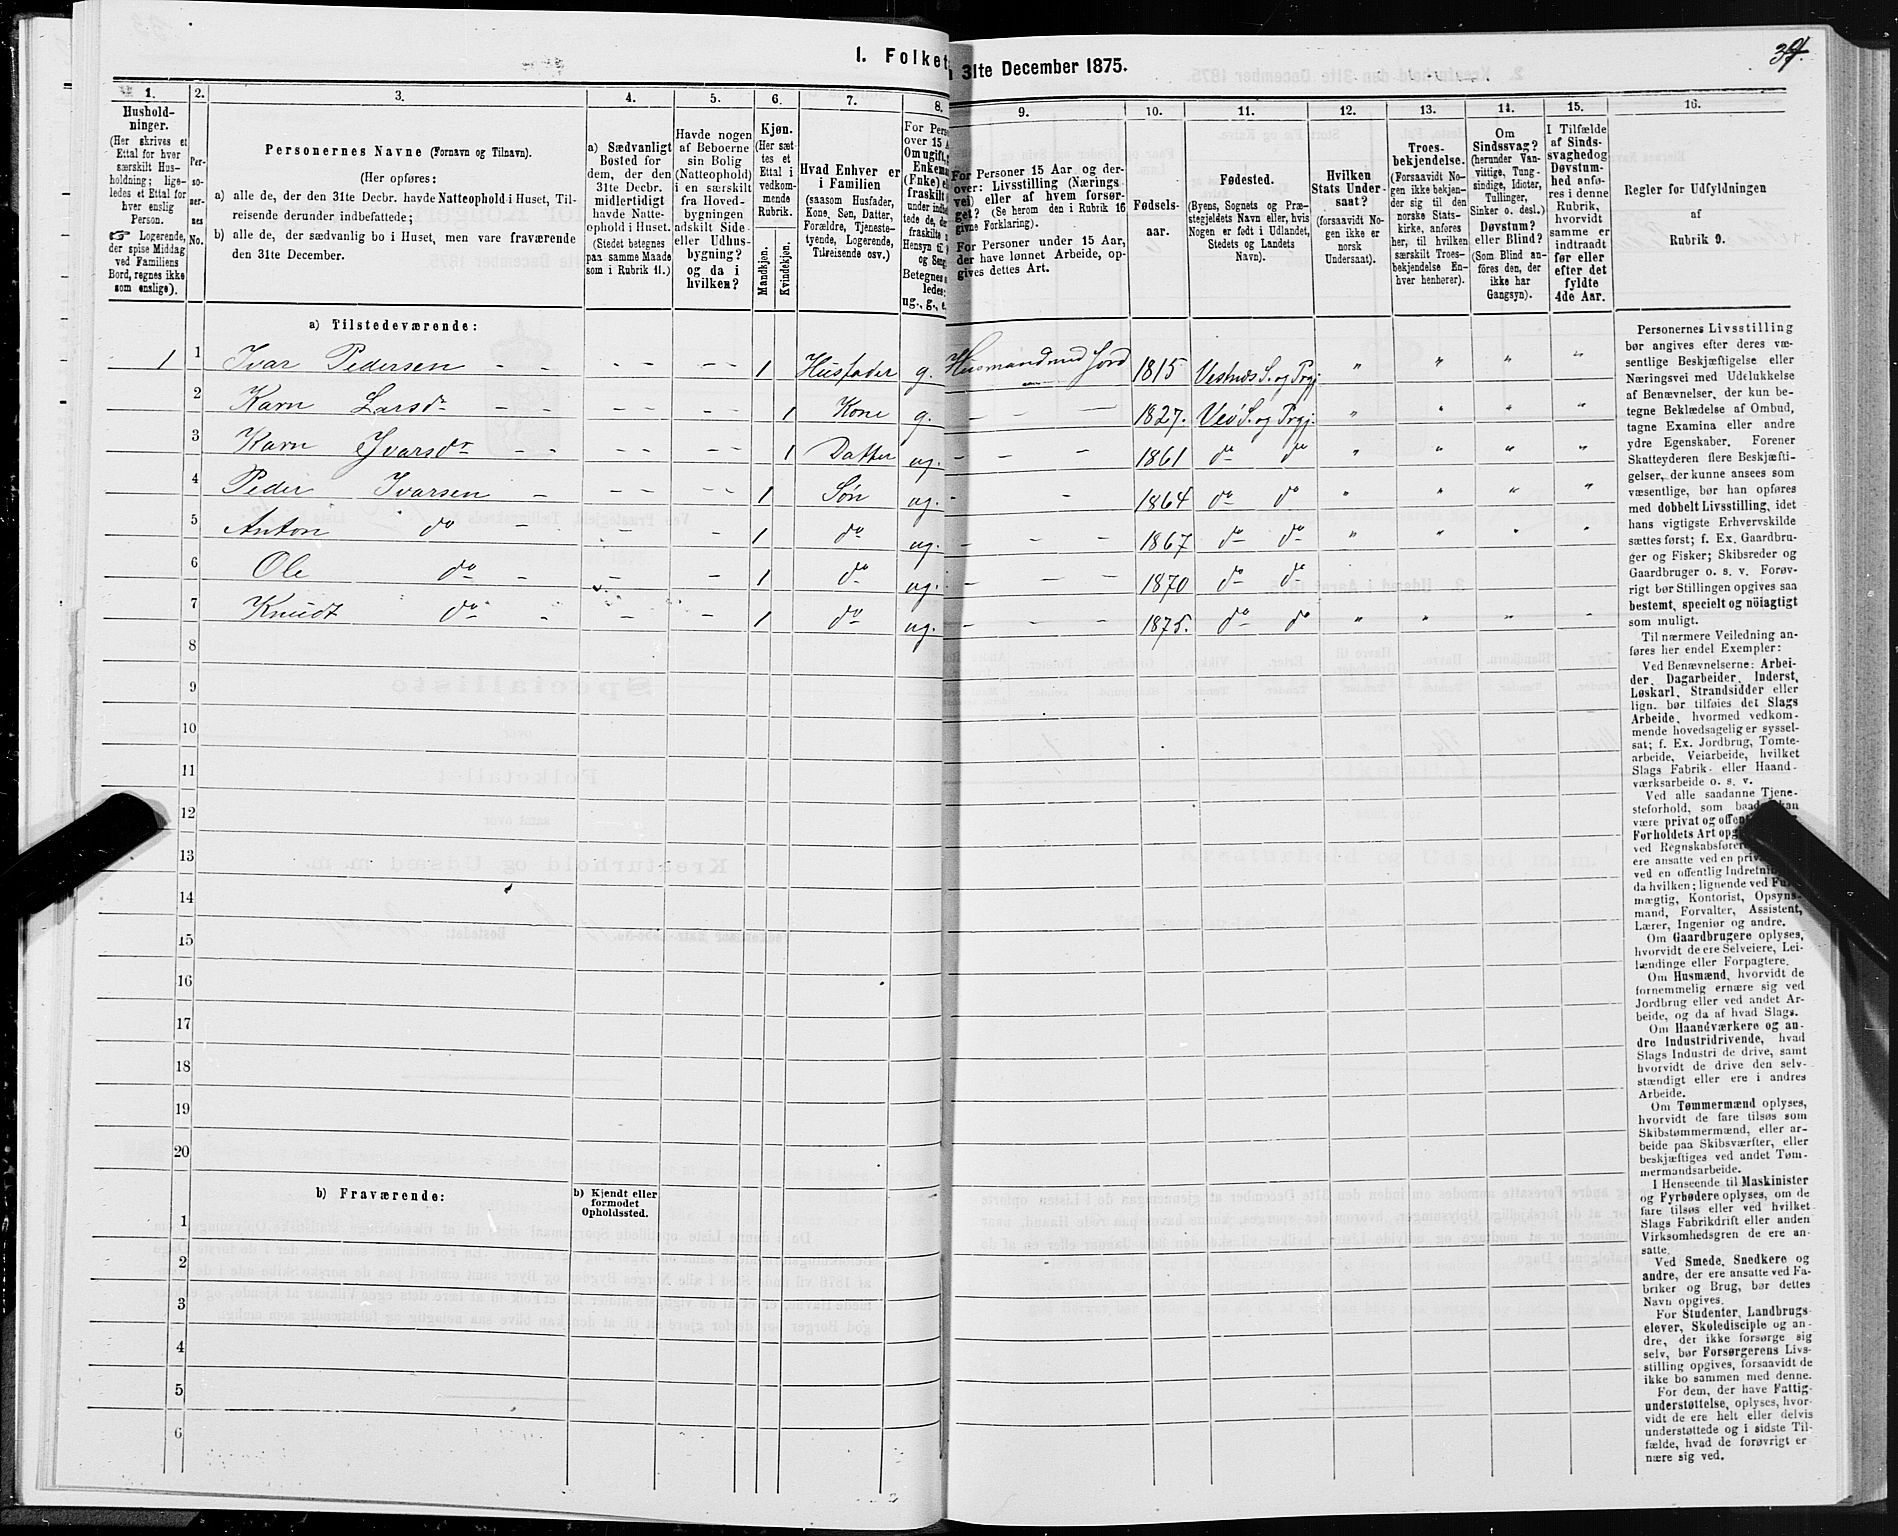 39.
1. Folket
31te December 1875.
1.
2.
3.
4.
5.
6.
7.
8.
9.
10.
11.
12.
13.
14.
15.
16.
Hushold-
ninger.
(Her skrives et
Ettal for hver
særskilt Hus-
holdning; lige-
ledes et Ettal for
hver enslig
Person.
☞ Logerende,
der spise Middag
ved Familiens
Bord, regnes ikke
som enslige).
Per-
so-
ner-
nes
No.
Personernes Navne (Fornavn og Tilnavn).
(Her opføres:
a) alle de, der den 31te Decbr. havde Natteophold i Huset, Til-
reisende derunder indbefattede;
b) alle de, der sædvanlig bo i Huset, men vare fraværende
den 31te December.
a) Sædvanligt
Bosted for
dem, der den
31te Decbr.
midlertidigt
havde Natte-
ophold i Huset.
(Stedet betegnes
paa samme Maade
som i Rubrik 11.)
Havde nogen
af Beboerne
sin Bolig
(Natteophold)
i en særskilt
fra Hoved-
bygningen
adskilt Side-
eller Udhus-
bygning?
og da i
hvilken?
Kjøn.
(Her sæt-
tes et
Ettal i
vedkom-
mende
Rubrik.
Mandkjøn.
Kvindekjøn.
Hvad Enhver er
i Familien
(saasom Husfader,
Kone, Søn, Datter,
Forældre, Tjeneste-
tyende, Logerende,
Tilreisende osv.)
For Pers
over 15 A
Om ugift,
Enkema
(Enke) e
fraskilt
under indb
tede de, d
fraskilte
Hensyn til
og Seng
Betegnes
ledes:
ug., g., e.
For Personer 15 Aar og der-
over: Livsstilling (Nærings-
vei) eller af hvem forsør-
get? (Se herom den i Rubrik 16
givne Forklaring).
For Personer under 15 Aar,
der have lønnet Arbeide, op-
gives dettes Art.
Fødsels-
aar.
Fødested.
(Byens, Sognets og Præ-
stegjeldets Navn eller, hvis
Nogen er født i Udlandet,
Stedets og Landets
Navn).
Hvilken
Stats Under-
saat?
(forsaavidt No-
gen ikke er
norsk
Undersaat).
Troes-
bekjendelse.
(Forsaavidt No-
gen ikke bekjen-
der sig til den
norske Stats-
kirke, anføres
her, til hvilken
særskilt Troes-
bekjendelse En-
hver henhører).
Om
Sindssvag?
(herunder Van-
vittige, Tung-
sindige, Idioter,
Tullinger,
Sinker o. desl.)
Døvstum?
eller Blind?
(Som Blind an-
føres den, der
ikke har
Gangsyn).
I Tilfælde
af Sinds-
svaghed og
Døvstum-
hed anfø-
res i denne
Rubrik,
hvorvidt
samme er
indtraadt
før eller
efter det
fyldte
4de Aar.
Regler for Udfyldningen
af
Rubrik 9.
a) Tilstedeværende:
1 1 Ivar Pedersen - - - - - - 1 Husfader g. Husmand med Jord 1815 Vestnes S. og Prgj. " " " "
2 Karn Larsdr - - - - - - 1 Kone g. - - - 1827. Veø S. og Prgj. " " " "
3 Karn Ivarsdr - - - - - - 1 Datter ug. - - - 1861 do do " " " "
4 Peder Ivarsen - - - - - 1 Søn ug. - - 1864 do do " " " "
5 Anton do - - - 1 do ug. - - - 1867 do do " " " "
6 Ole do - - - 1 do ug. 1870 do do
7 Knudt do - - - 1 do ug. - - - 1875. do do " " " "
8
9
10
11
12
13
14
15
16
17
18
19
20
b) Fraværende:
b) Kjendt eller
formodet
Opholdssted.
1
2
3
4
5
6
Personernes Livsstilling
bør angives efter deres væ-
sentlige Beskjæftigelse eller
Næringsvei med Udelukkelse
af Benævnelser, der kun be-
tegne Beklædelse af Ombud,
tagne Examina eller andre
ydre Egenskaber. Forener
Skatteyderen flere Beskjæfti-
gelser, der kunne ansees som
væsentlige, bør han opføres
med dobbelt Livsstilling, idet
hans vigtigste Erhvervskilde
sættes først; f. Ex. Gaardbru-
ger og Fisker; Skibsreder og
Gaardbruger o. s. v. Forøv-
rigt bør Stillingen opgives saa
bestemt, specielt og nöiagtigt
som muligt.
Til nærmere Veiledning an-
føres her endel Exempler:
Ved Benævnelserne: Arbei-
der, Dagarbeider, Inderst,
Løskarl, Strandsidder eller
lign. bør tilføies det Slags
Arbeide, hvormed vedkom-
mende hovedsagelig er syssel-
sat; f. Ex. Jordbrug, Tomte-
arbeide, Veiarbeide, hvilket
Slags Fabrik- eller Haand-
værksarbeide o. s. v.
Ved alle saadanne Tjene-
steforhold, som baade kan
være privat og offent
Forholdets Art opg
ved Regnskabsfører
ere ansatte ved en priv
ved en offentlig Indretni
da hvilken; lignende ved Fuld-
mægtig, Kontorist, Opsyns-
mand, Forvalter, Assistent,
Lærer, Ingeniør og andre.
Om Gaardbrugere oplyses,
hvorvidt de ere Selveiere, Lei-
lændinge eller Forpagtere.
Om Husmænd, hvorvidt de
fornemmelig ernære sig ved
Jordbrug eller ved andet Ar-
beide, og da af hvad Slags.
Om Haandværkere og an-
dre Industridrivende, hvad
Slags Industri de drive, samt
hvorvidt de drive den selv-
stændigt eller ere i andres
Arbeide.
Om Tømmermænd oplyses,
hvorvidt de fare tilsøs som
Skibstømmermænd, eller ar-
beide paa Skibsværfter, eller
beskjæftiges ved andet Tøm-
mermandsarbeide.
I Henseende til Maskinister
og Fyrbødere oplyses, om de
fare tilsøs eller ved hvilket
Slags Fabrikdrift eller anden
Virksomhedsgren de ere an-
satte.
Ved Smede, Snedkere og
andre, der ere ansatte ved Fa-
briker og Brug, bør dettes
Navn opgives.
For Studenter, Landbrugs-
elever, Skoledisciple og an-
dre, der ikke forsørge sig
selv, bør Forsørgerens Livs-
stilling opgives, forsaavidt de
ikke bo sammen med denne.
For dem, der have Fattig-
understøttelse, oplyses, hvor-
vidt de ere helt eller delvis
understøttede og i sidste Til-
fælde, hvad de forøvrigt er
nære sig ved.